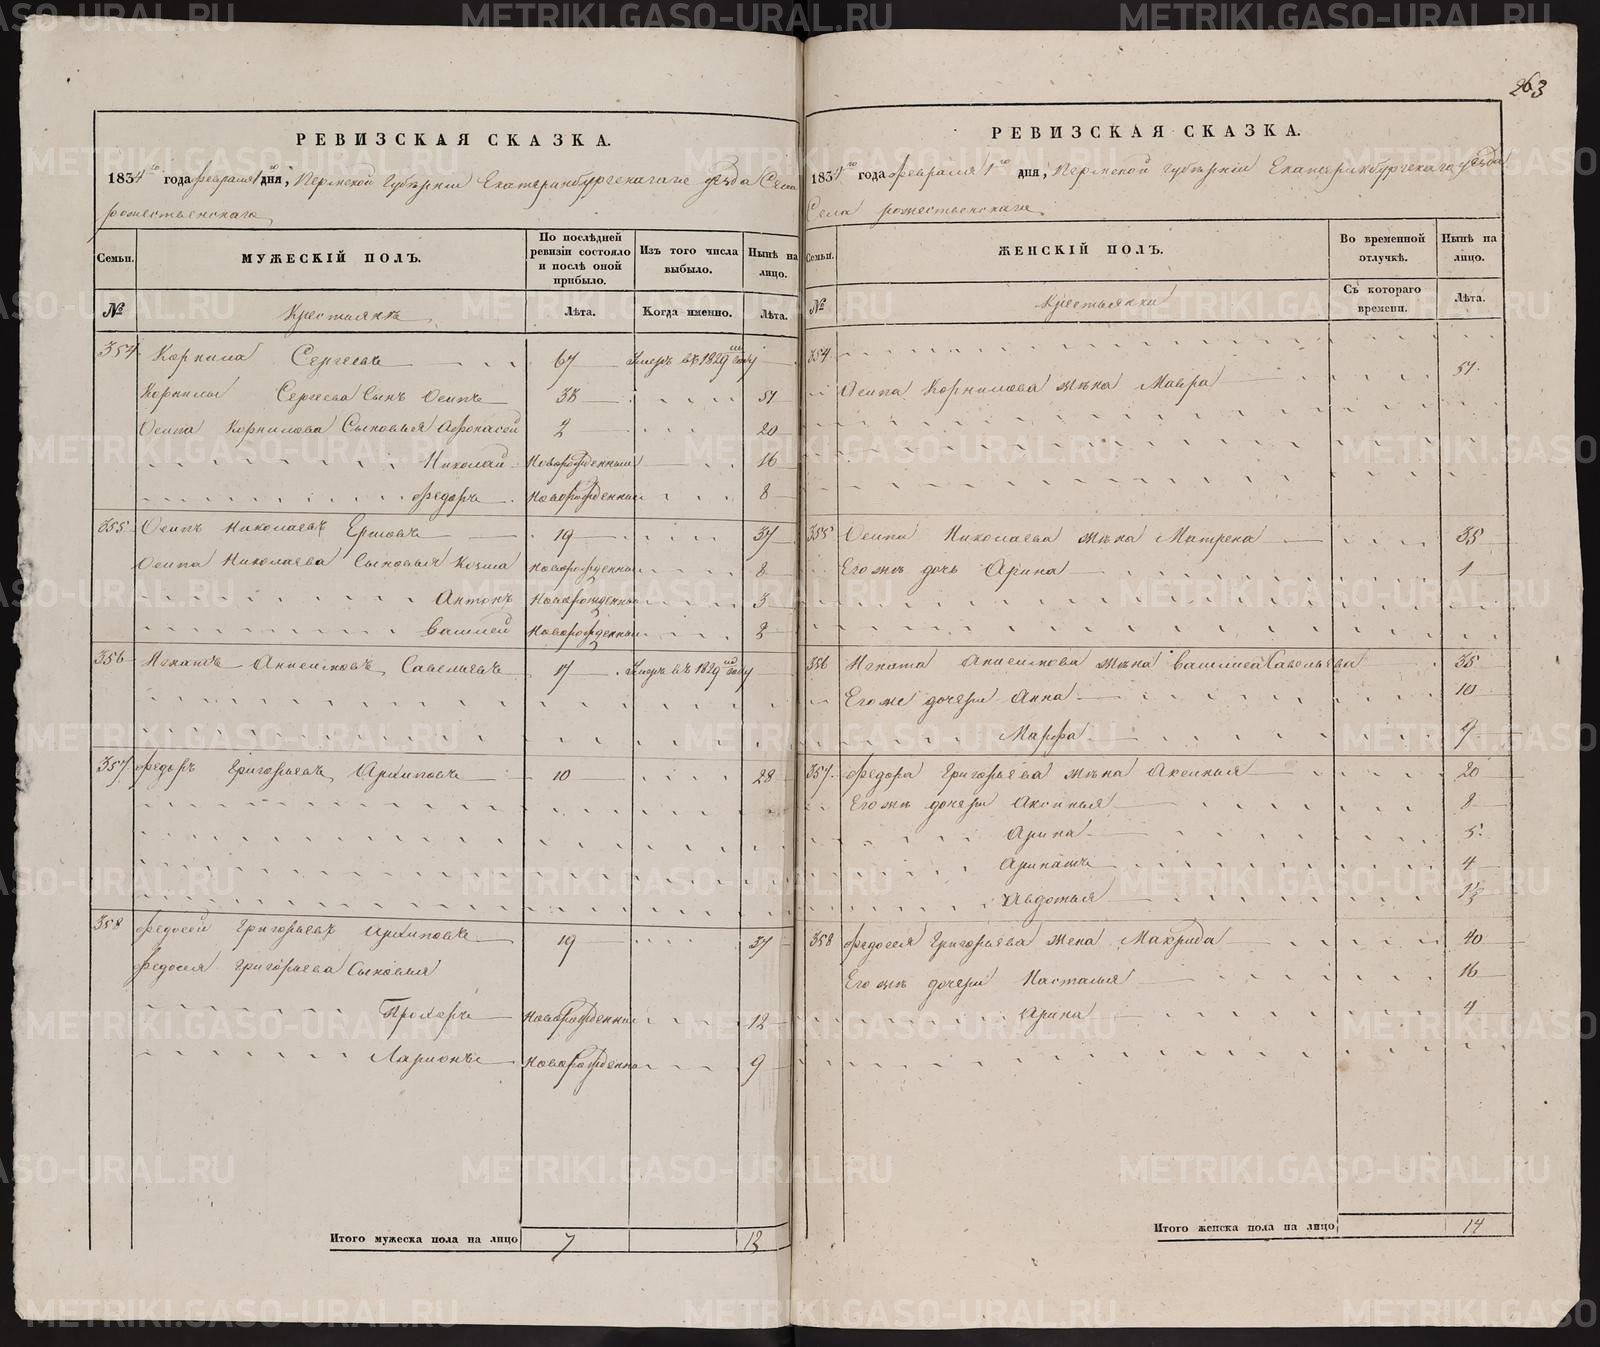 263
РЕВИЗСКАЯ СКАЗКА.
1834го года февраля 1го дня, Пермской Губернiи Екатеринбургскаго уезда Села
рожественскаго
Семьи. МУЖЕСКIЙ ПОЛЪ. По послѣдней ревизiи состояло и послѣ оной прибыло. Изъ того числа выбыло. Нынѣ на лицо.
№ Крестьянъ Лѣта. Когда именно. Лѣта.
354 Корнила Сергеевъ 67 Умеръ въ 1829м году
Корнилы Сергеева Сынъ Осипъ 38 51
Осипа Корнилова Сыновья Афонасей 2 20
Николай Новорожденный 16
Федоръ Новорожденный 8
355 Осипъ Николаевъ 19 37
Осипа Николаева Сыновья Козма Новорожденный 8
Антонъ Новорожденный 3
Василей Новорожденный 2
356 Игнатъ Анисимовъ Савельевъ 17 Умеръ въ 1829м году
357 Федоръ Григорьевъ Архиповъ 10 28
358 Федосей Григорьевъ Архиповъ 19 37
Федосея Григорьева Сыновья
Прохоръ Новорожденный 12
Ларионъ Новорожденный 9
Итого мужеска пола на лицо 7 12
РЕВИЗСКАЯ СКАЗКА.
1834го года Февраля 1го дня, Пермской Губернiи Екатеринбургскаго уезда
Села рожественскаго
Семьи. ЖЕНСКIЙ ПОЛЪ. Во временной отлучкѣ. Нынѣ на лицо.
№ Крестьянки Съ котораго времени. Лѣта.
354
Осипа Корнилова жена Мавра 51
355 Осипа Николаева жена Матрена 35
Его же дочь Арина 1
356 Игната Анисимова жена Савельева 35
Его же дочери Анна 10
Марфа 9
357 Федора Григорьева жена Аксинья 20
Его же дочери Аксинья 8
Арина 5
4
Авдотья
358 Федосея Григорьева жена Макрида 40
Его же дочери Насталья 16
Арина 4
Итого женска пола на лицо 14
METRIKI.GASO-URAL.RU